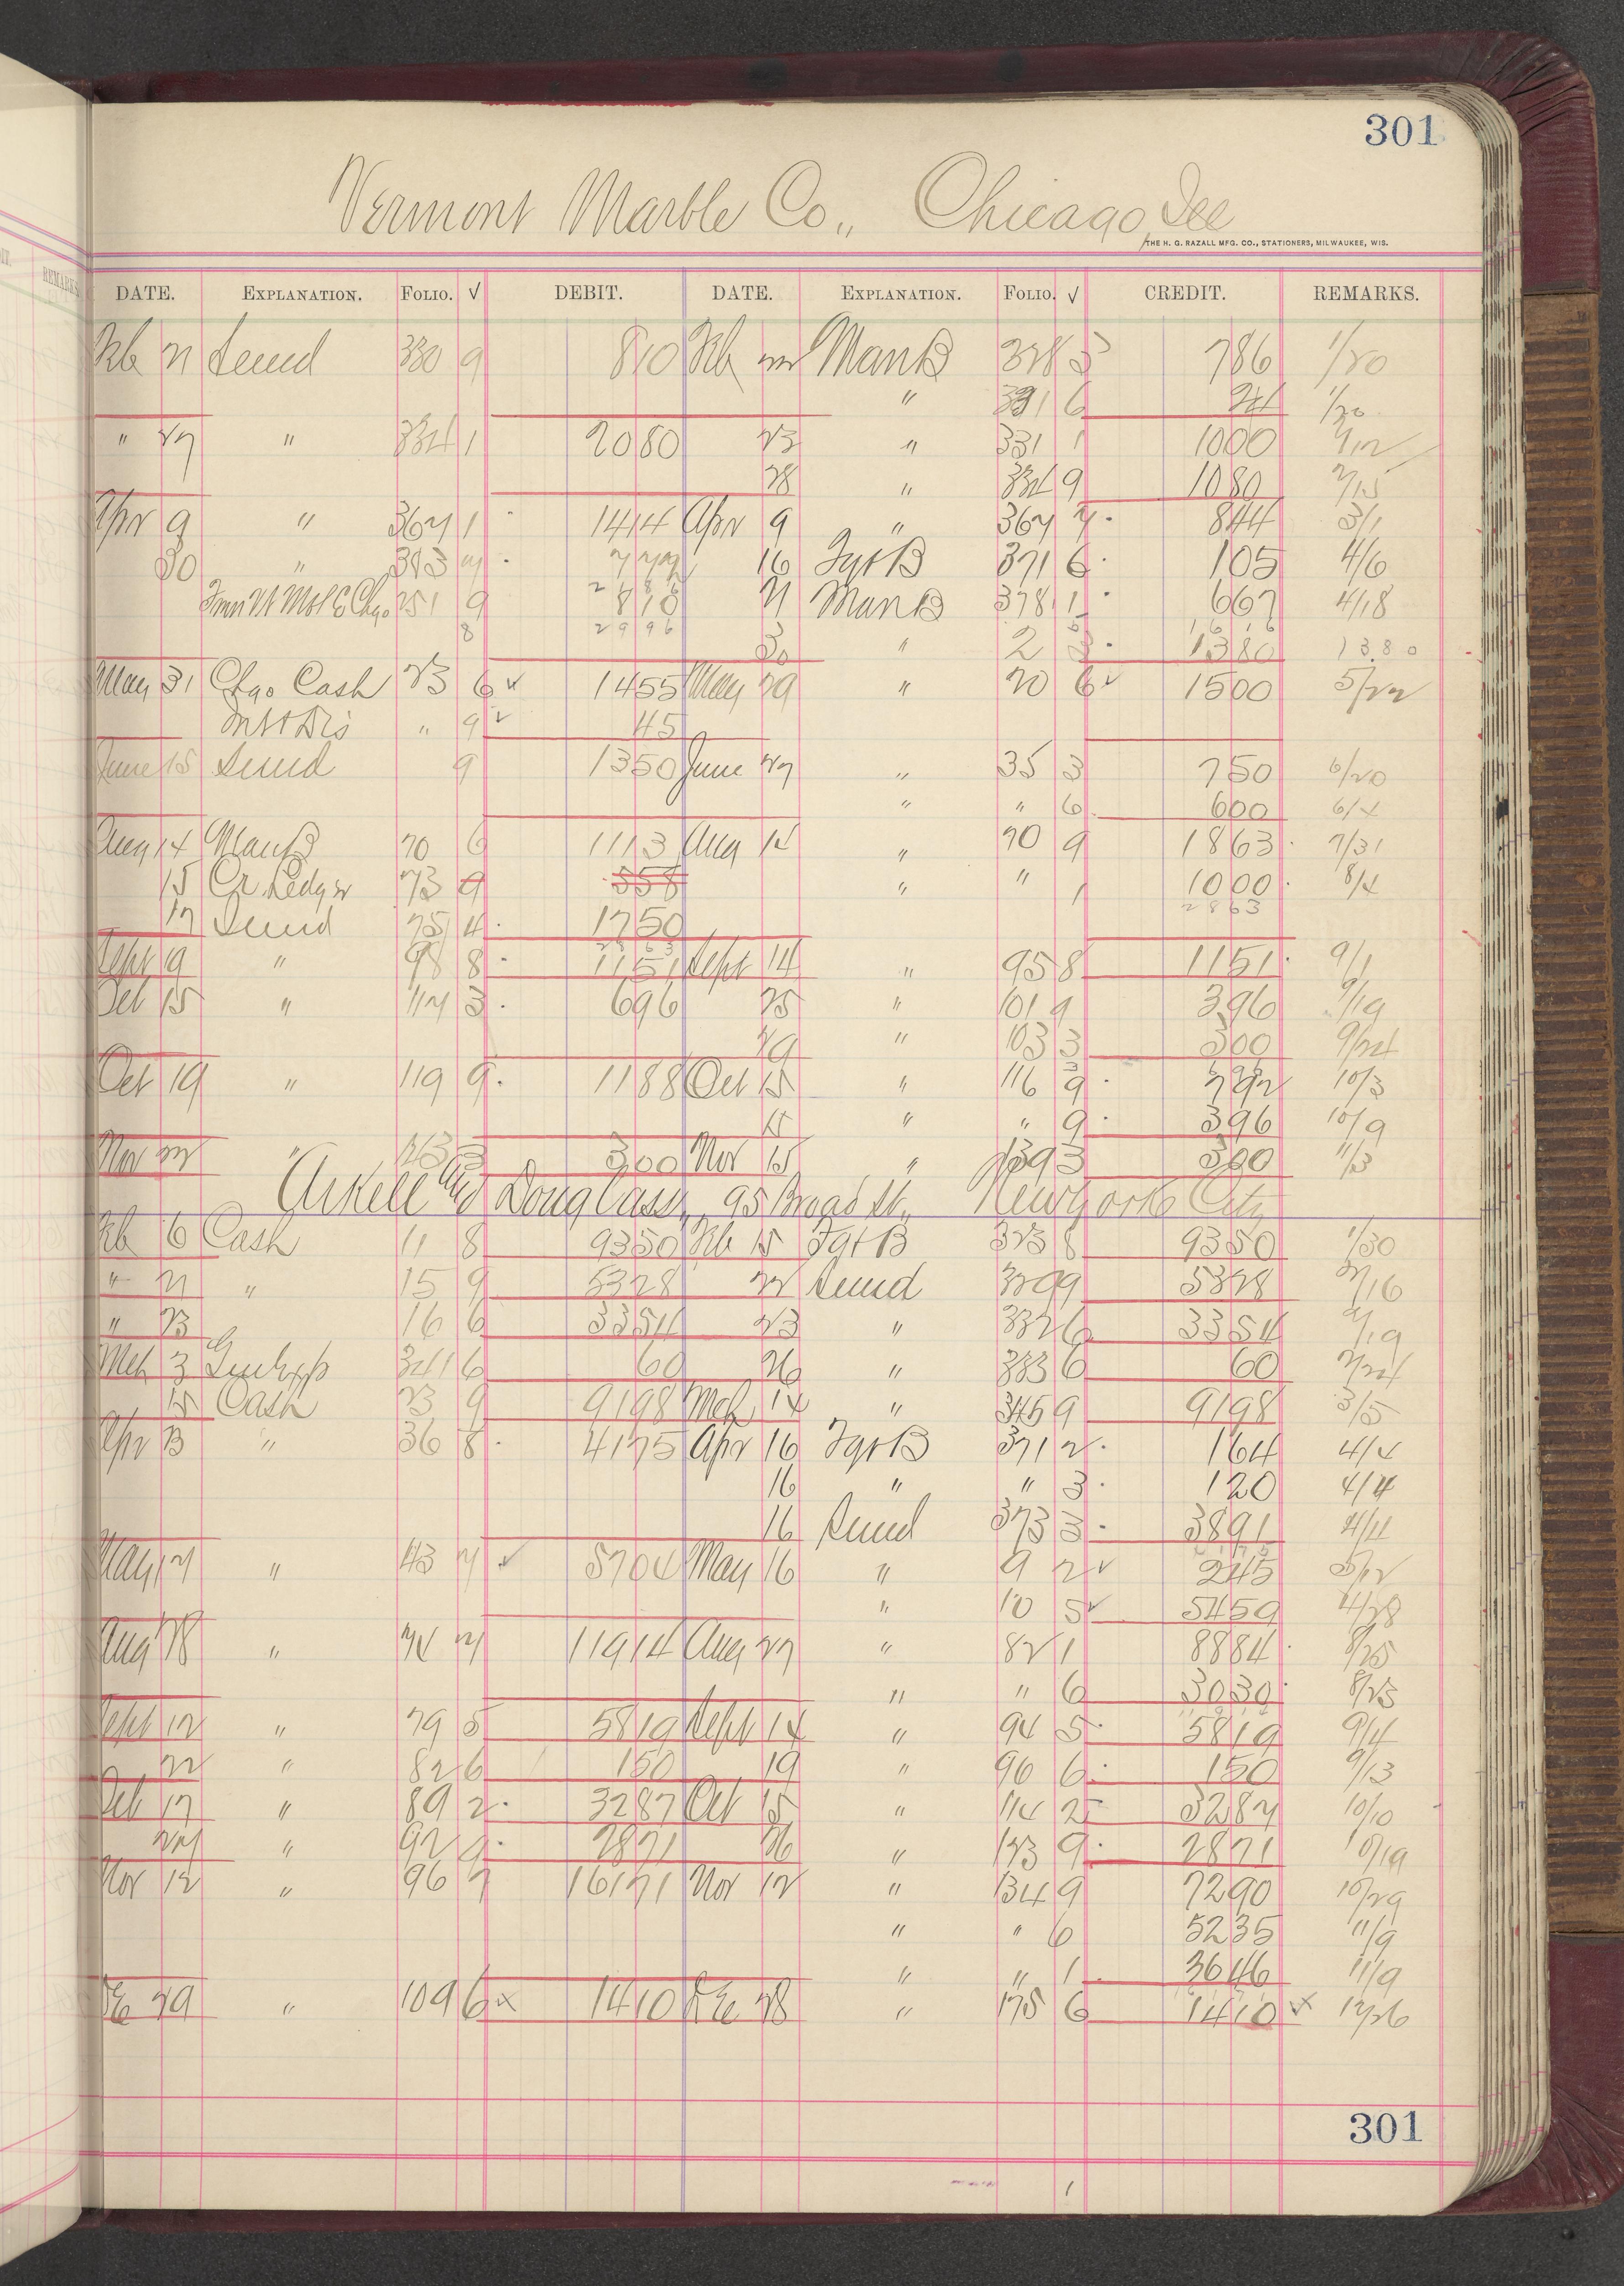 301
Vermont Marble Co., Chicago, Ill
THE H. G. RAZALL MFG. CO., STATIONERS, MILWAUKEE, WIS.
DATE. EXPLANATION. FOLIO. √ DEBIT. DATE. EXPLANATION. FOLIO. √ CREDIT. REMARKS.
Feb 21 Sund 330 9 810 Feb 22 ManB 328 3 786 1/20
" 331 6 24 1/20
" 27 " 334 1 2080 23 " 331 1 1000 2/12
28 " 334 9 1080 2/15
Apr 9 " 367 1 1414 Apr 9 " 367 7 844 3/1
30 " 383 16 FgtB 371 6 105 4/6
251 9 810 21 ManB 378 1 667 4/18
8 2996 30 " 2 3 1380 1380
May 31 Chgo Cash 23 6 √ 1455 May 29 " 20 6 √ 1500 5/22
Int & Dis " 9 √ 45
June 15 Sund 9 1350 June 27 " 35 3 750 6/20
" " 6 600 6/4
Aug 14 ManB 70 6 1113 Aug 14 " 70 9 1863 7/31
15 Cr Ledger 73 9 558 " " 1 1000 8/4
17 Sund 75 4 1750 2863
Sept 19 " 98 8 1151 Sept 14 " 95 8 1151 9/1
Oct 15 " 117 3 696 25 " 101 9 396 9/19
29 " 103 3 300 9/24
Oct 19 " 119 9 1188 Oct 15 " 116 9 792 10/3
15 " " 9 396 10/9
Nov 22 " 3 300 Nov 15 " 139 3 300 11/3
Arkell and Douglass, 95 Broad St., New York City
Feb 6 Cash 11 8 9350 Feb 15 FgtB 323 8 9350 1/30
" 21 " 15 9 5328 22 Sund 329 9 5328 2/16
" 23 16 6 3354 23 " 332 6 3354 2/19
Mch 3 341 6 60 26 " 333 6 60 2/24
15 Cash 23 9 9198 Mch 14 " 345 9 9198 3/5
Apr 13 " 36 8 4175 Apr 16 FgtB 371 2 164 4/4
16 " " 3 120 4/4
16 Sund 373 3 3891 4/4
May 17 " 43 7 √ 5704 May 16 " 9 2 √ 245 5/12
" 10 5 √ 5459 4/28
Aug 28 " 74 7 11914 Aug 27 " 82 1 8884 8/25
" " 6 3030 8/23
Sept 12 " 79 5 5819 Sept 14 " 94 5 5819 9/4
22 " 82 6 150 19 " 96 6 150 9/13
Oct 17 " 89 2 3287 Oct 15 " 114 2 3287 10/10
27 " 92 9 2871 26 " 123 9 2871 10/19
Nov 12 " 96 7 16171 Nov 12 " 134 9 7290 10/29
" " 6 5235 11/9
" " 1 3646 11/9
De 29 " 109 6 x 1410 De 28 " 175 6 1410 x 12/26
301